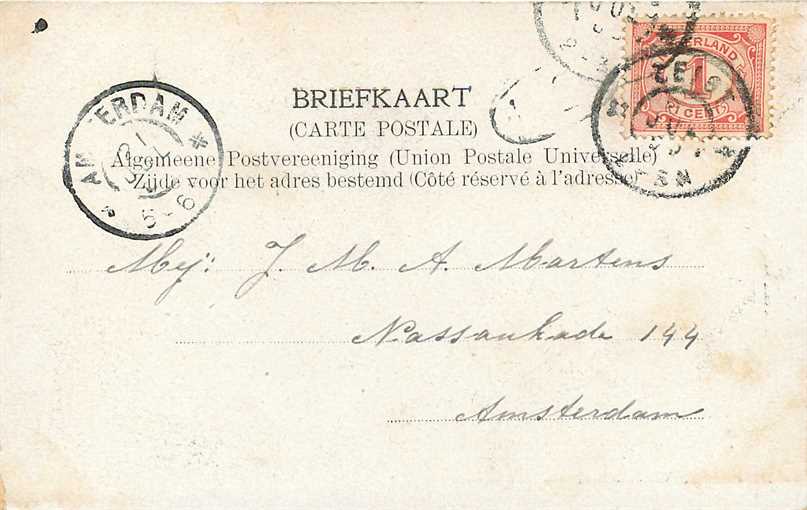 NEDERLAND
1
CENT
ZEIST
BRIEFKAART
(CARTE POSTALE)
AMSTERDAM
5-6
Algemeene Postvereeniging (Union Postale Universelle)
Zijde voor het adres bestemd (Côté réservé à l'adresse)
Mej: J. M. A. Martens
Nassaukade 144
Amsterdam